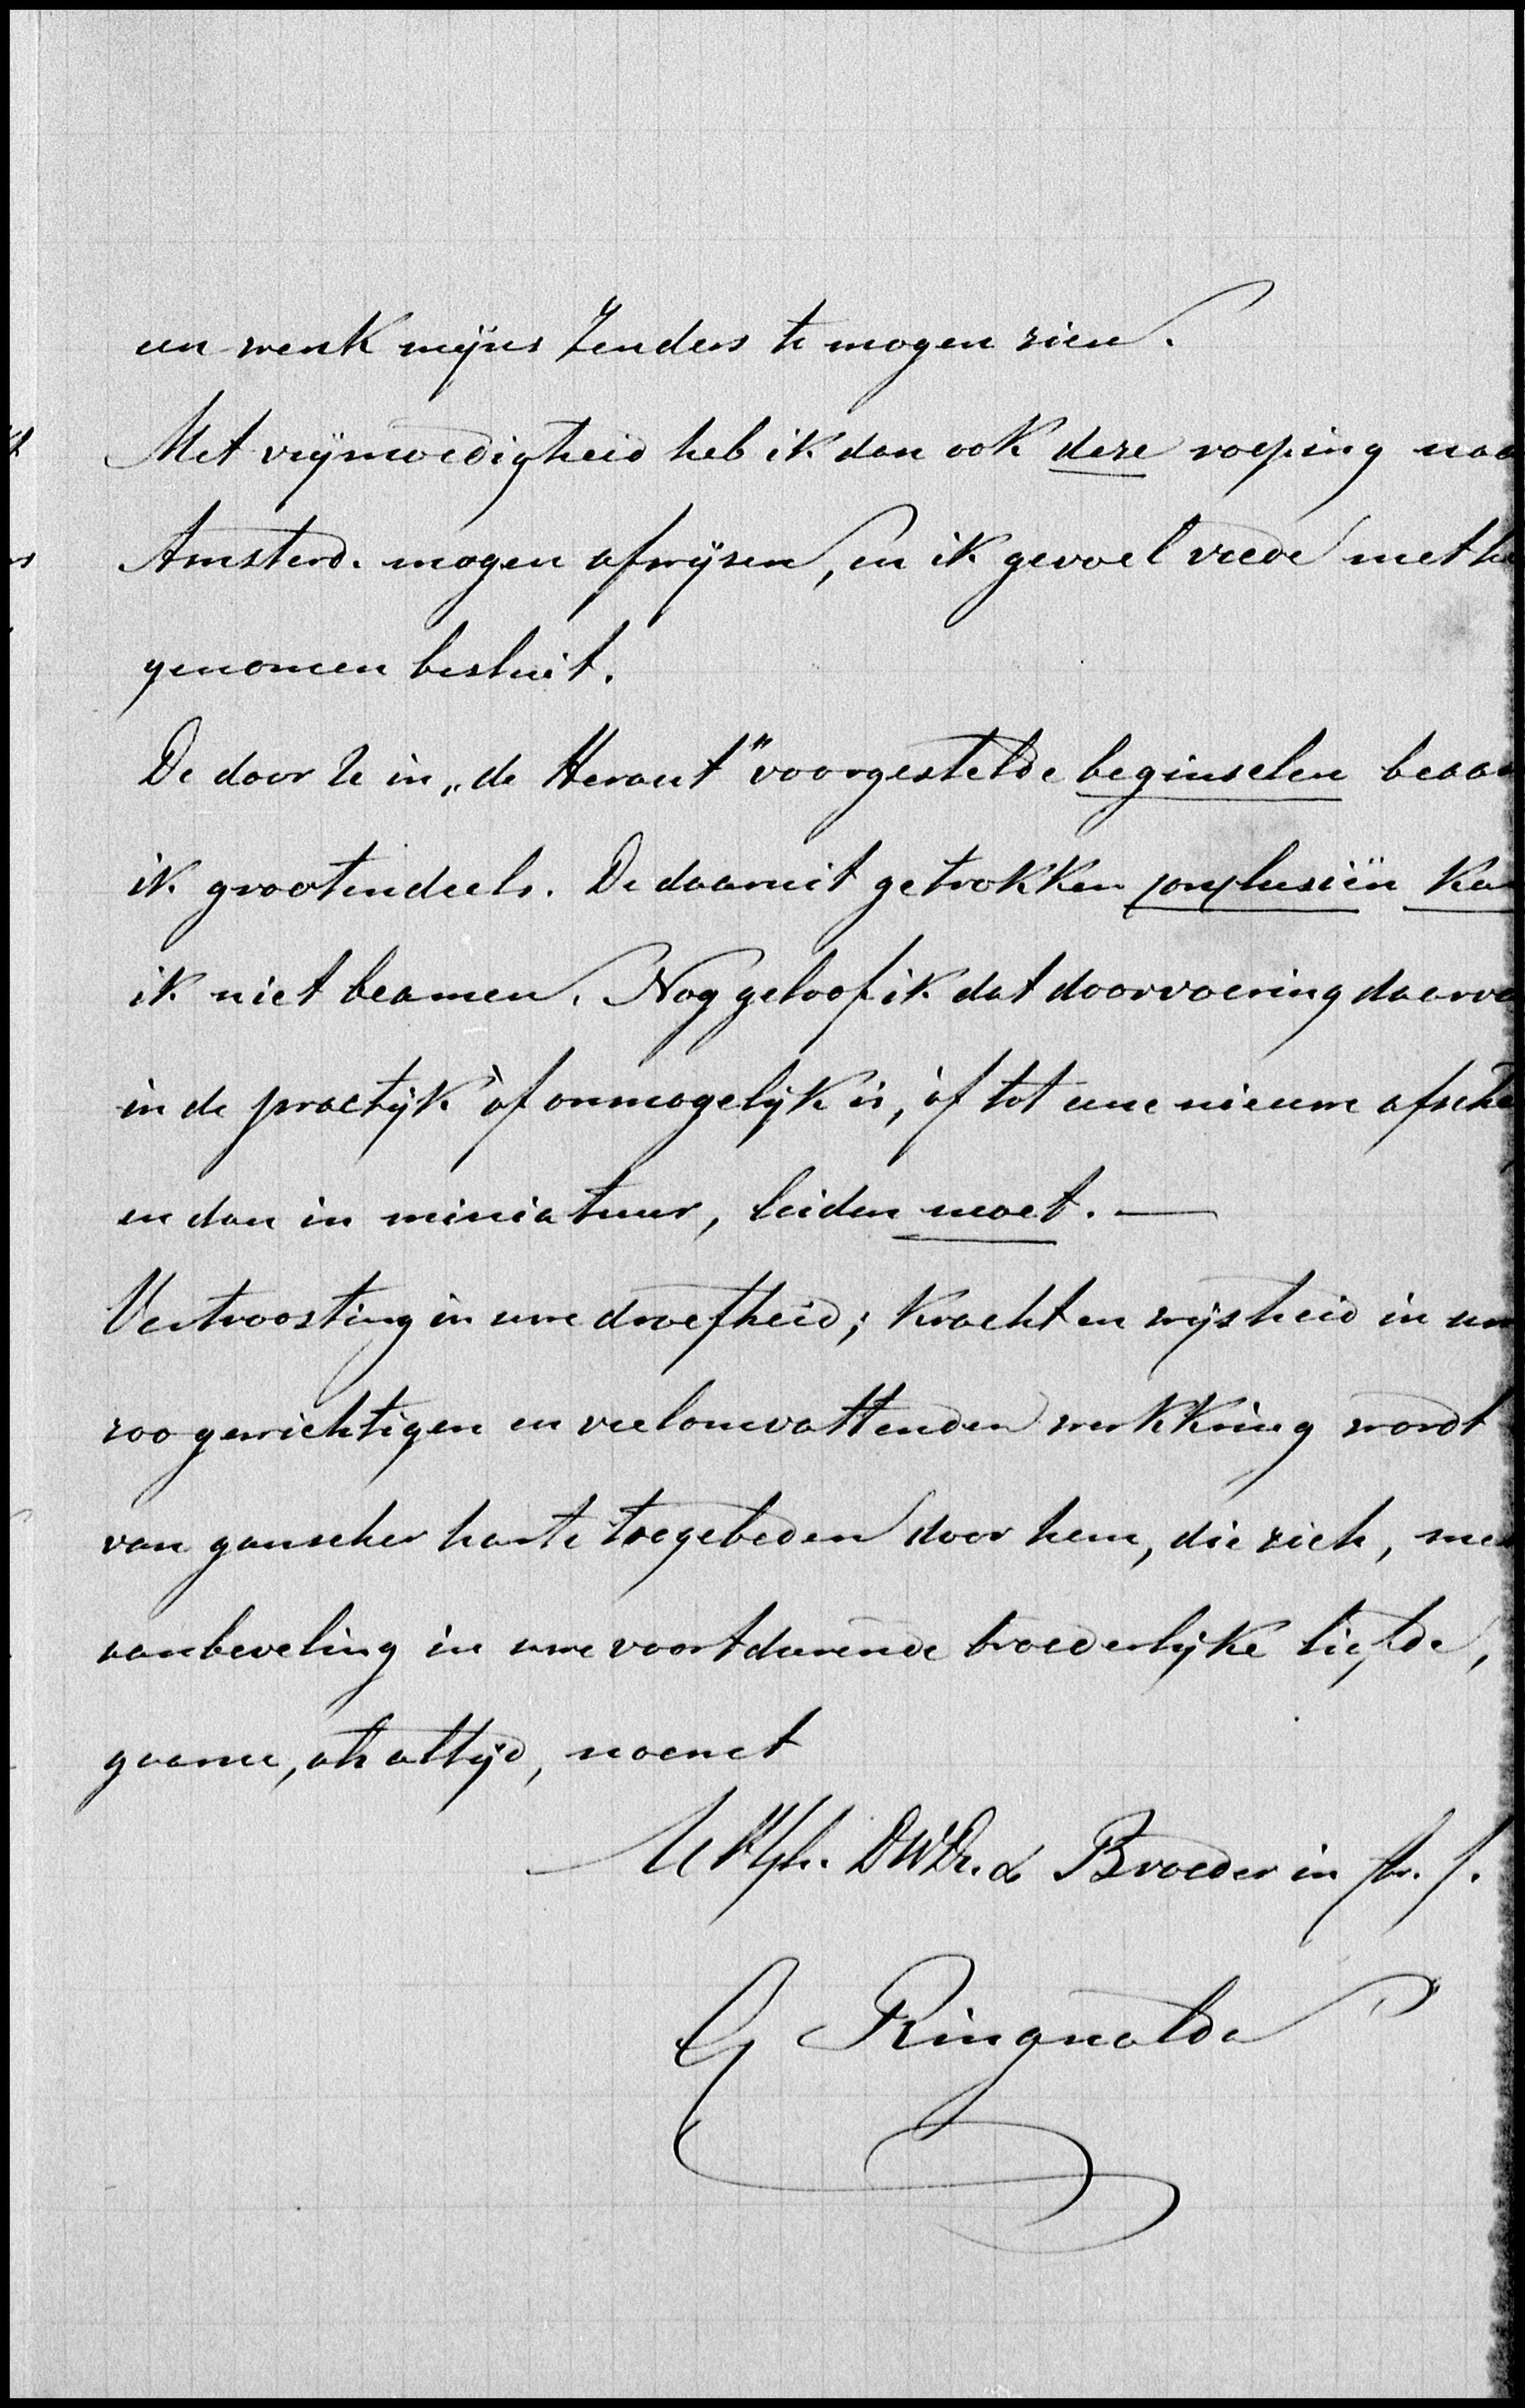 een wenk mijns Zenders te mogen zien.
Met vrijmoedigheid heb ik dan ook deze roeping naa
Amsterd. mogen afwijzen, en ik gevoel vrede met he
genomen besluit.
De door U in „de Heraut" voorgestelde beginselen beaam
ik grootendeels. De daaruit getrokken conclusiën kan
ik niet beamen. Nog geloof ik dat doorvoering daarva
in de practijk òf onmogelijk is, òf tot eene nieuwe afsche
en dan in miniatuur, leiden moet. —
Vertroosting in uwe droefheid; kracht en wijsheid in uw
zoo gewichtigen en veelomvattenden werkkring wordt
van ganscher harte toegebeden door hem, die zich, met
aanbeveling in uwe voortdurende broederlijke liefde,
gaarne, als altijd, noemt
U DWDr. & Broeder in
G Ringnalda